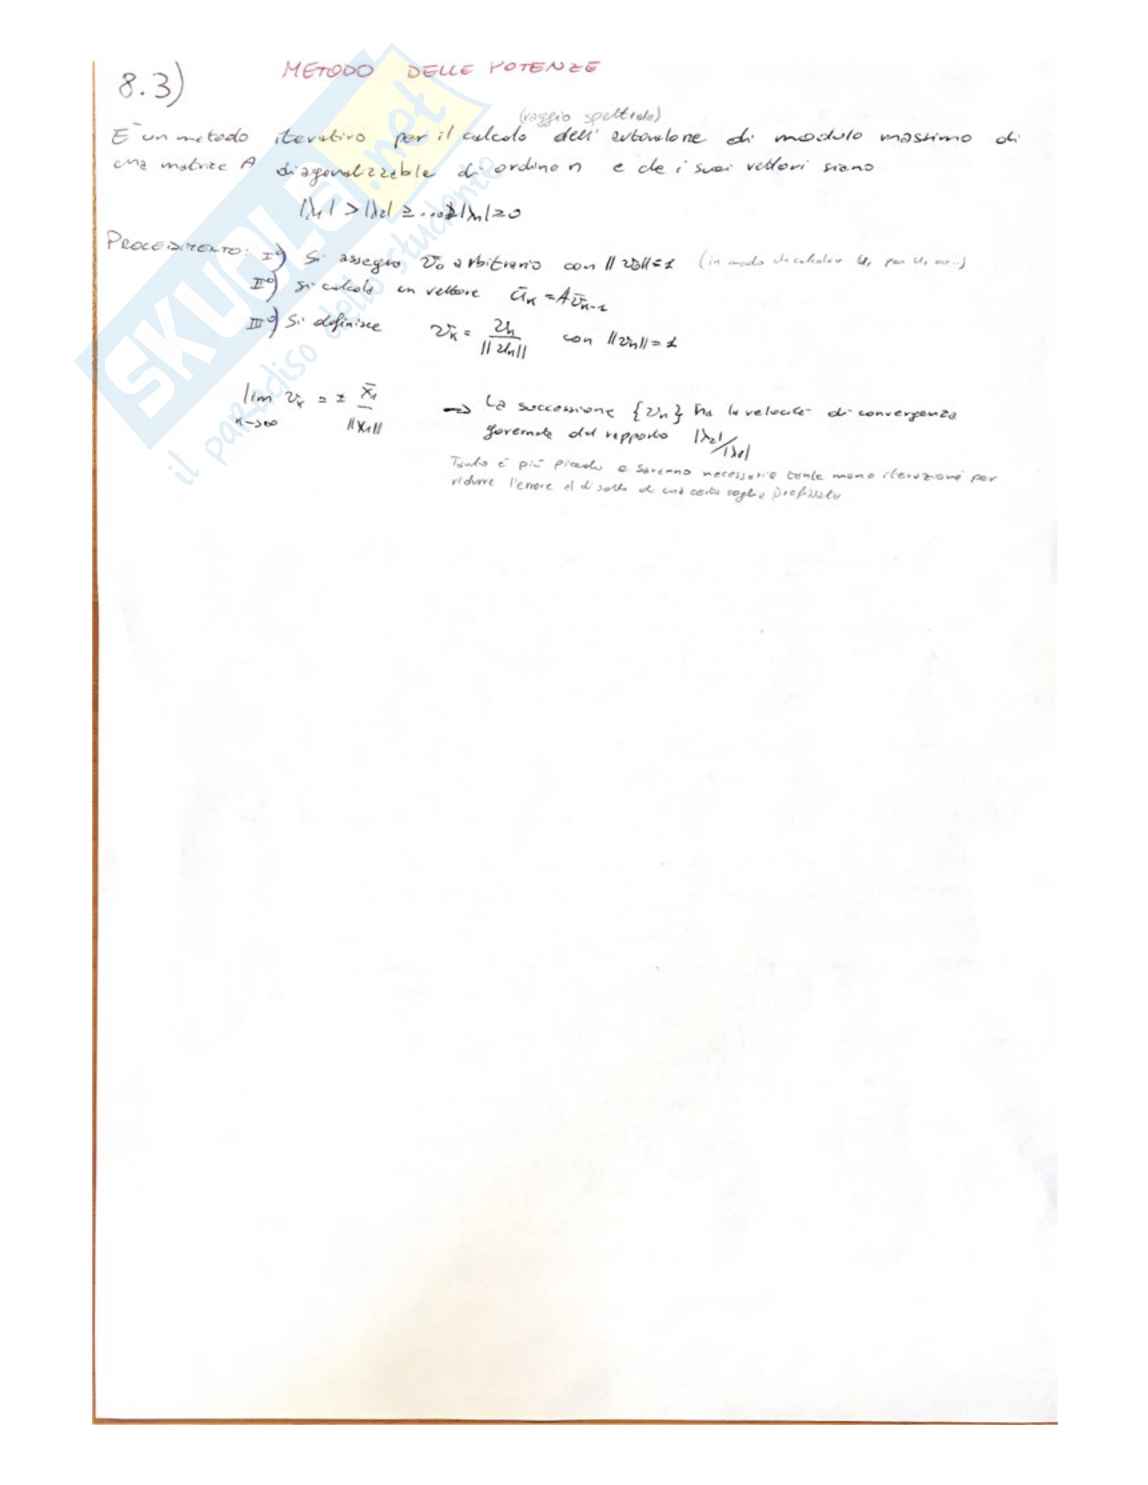 8.3) METODO DELLE POTENZE
(raggio spettrale)
È un metodo iterativo per il calcolo dell'autovalore di modulo massimo di
una matrice A diagonalizzable di ordine n e che i suoi vettori siano
|λ1| > |λ2| ≥ ....≥ |λn| ≥ 0
PROCEDIMENTO: I°) Si assegna v0 arbitrario con ||v0||=1 (in modo da calcolare u1, poi v1, ecc..)
II°) si calcola un vettore ūk = Av̄k-1
III°) Si definisce vk = uk / ||uk|| con ||vk|| = 1
lim k→∞ vk = ± x̄1 / ||x1|| → La successione {vn} ha la velocità di convergenza
governata dal rapporto |λ2|/|λ1|
Tanto è più piccolo e saranno necessarie tante meno iterazioni per
ridurre l'errore al di sotto di una certa soglia prefissata
SKUOLA.net
il paradiso dello studente